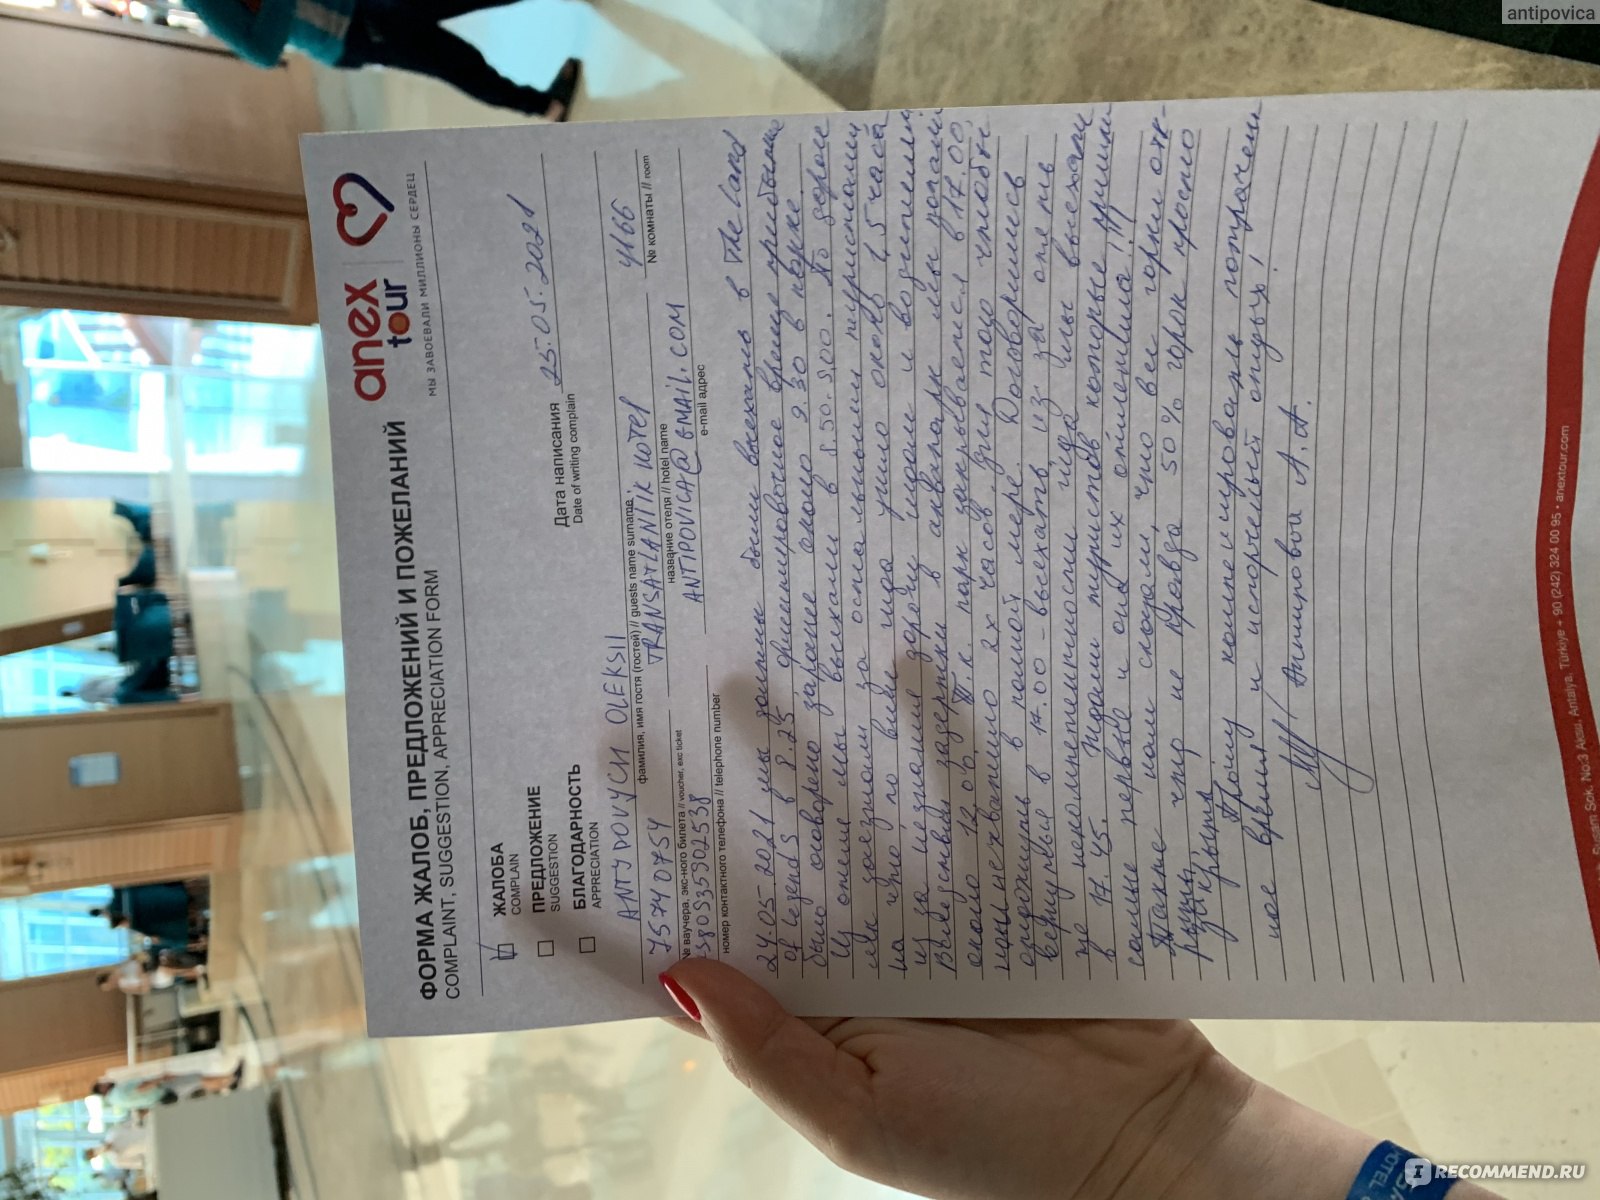 antipovica
ФОРМА ЖАЛОБ, ПРЕДЛОЖЕНИЙ И ПОЖЕЛАНИЙ
COMPLAINT, SUGGESTION, APPRECIATION FORM
anex
tour
МЫ ЗАВОЕВАЛИ МИЛЛИОНЫ СЕРДЕЦ
ЖАЛОБА
COMPLAIN
ПРЕДЛОЖЕНИЕ
SUGGESTION
БЛАГОДАРНОСТЬ
APPRECIATION
Дата написания 25.05.2021
Date of writing complain
ANTYDOVYCH OLEKSII
фамилия, имя гостя (гостей) // guests name surname
75740754 TRANSATLANIK HOTEL 4166
№ ваучера, экс-ного билета // voucher, exc ticket название отеля // hotel name № комнаты // room
380935902538 ANTIPOVICA@GMAIL.COM
номер контактного телефона // telephone number e-mail адрес
24.05.2021 мы должны были выехать в The Land
of Legends в 8.25, ориентировочное время прибытие
было оговорено заранее около 9.30 в парке.
Из отеля мы выехали в 8.50-9,00. По дороге
мы заезжали за остальными туристами
на что по вине гида ушло около 1,5 часа
из за незнание дороги гидом и водителем.
Вследствии задержки в аквапарк мы попали
около 12.00. Т.к. парк закрывается в 17.00,
нам не хватило 2х часов для того чтобы
отдохнуть в полной мере. Договорились
вернуться в 17.00 - выехать из за опять
же некомпетентности гида мы выехали
в 17.45. Ждали туристов которые пришли
самые первые и она их отметила!!!
Также нам сказали, что все горки отк-
рыты, что не правда 50% горок просто
закрыты
Прошу компенсировать потрачен
ное время и испорченый отдых!
Антиповой А.А.
Sok. No:3 Aksu, Antalya, Türkiye + 90 (242) 324 00 95 • anextour.com
HOTEL
IRECOMMEND.RU